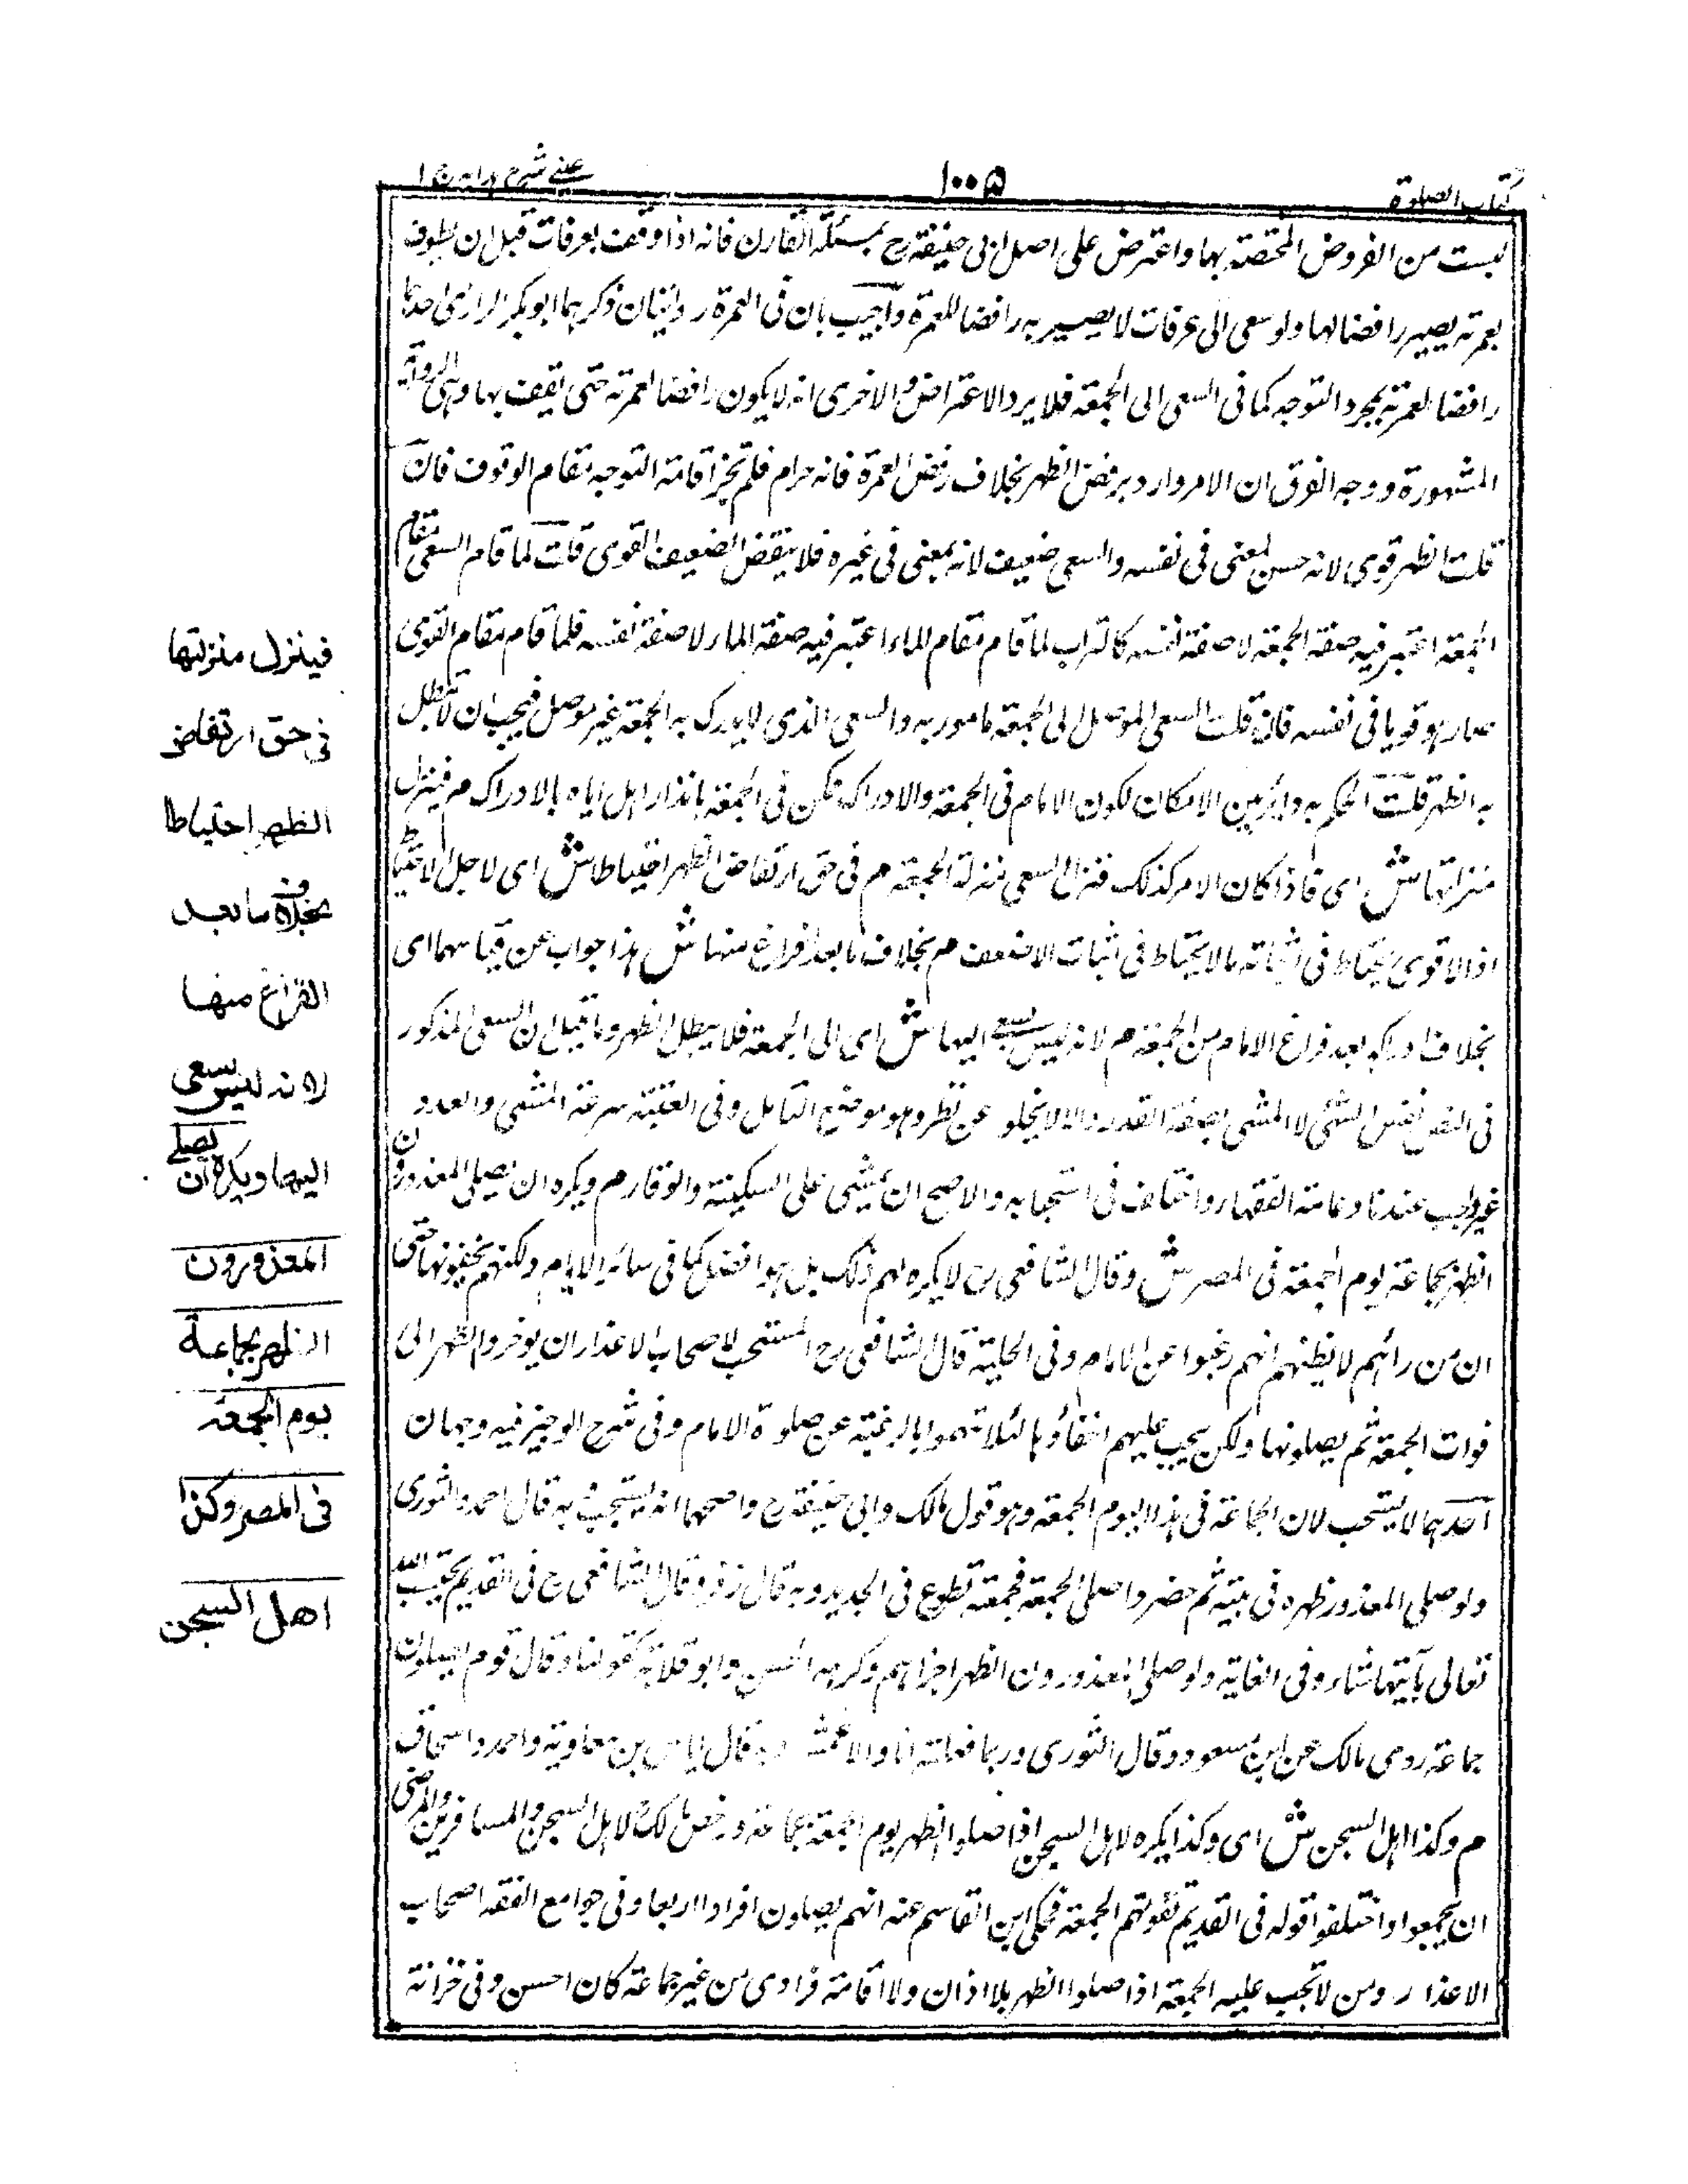 كتاب الصلوة
١٠٠٥
عينى شرح هدايه ج ١
ليست من الفروض المختصة بها واعترض على اصل ابى حنيفة رح بمسئلة القارن فانه اذا وقف بعرفات قبل ان يطوف
بعمرته يصير رافضا لها ولو سعى الى عرفات لا يصير به رافضا للعمرة واجيب بان فى العمرة روايتان ذكرهما ابو بكر الرازى احدهما
رافضا لعمرته بمجرد التوجه كما فى السعى الى الجمعة فلا يرد الاعتراض والاخرى انه لا يكون رافضا لعمرته حتى يقف بها وهى الرواية
المشهورة ووجه الفرق ان الامر وارد برفض الظهر بخلاف رفض العمرة فانه حرام فلم تجز اقامة التوجه مقام الوقوف فان
قلت الظهر قوى لانه حسن لمعنى فى نفسه والسعى ضعيف لانه بمعنى فى غيره فلا ينقض الضعيف القوى قلت لما قام السعى مقام
الجمعة اعتبر فيه صفة الجمعة لا صفة نفسه كالتراب لما قام مقام الماء اعتبر فيه صفة الماء لا صفة نفسه فلما قام مقام القوى
صار هو قويا فى نفسه فان قلت السعى الموصل الى الجمعة مامور به والسعى الذى لا يدرك به الجمعة غير موصل فيجب ان لا يبطل
به الظهر قلت الحكم به دائر بين الامكان لكون الامام فى الجمعة والادراك ممكن فى الجمعة باقدار اهل اياه بالادراك م فينزل
منزلتها ش اى فاذا كان الامر كذلك فنزل السعى منزلة الجمعة م فى حق ارتفاض الظهر احتياطا ش اى لاجل الاحتياط
اذ الاقوى يحتاط فى اثباته ما لا يحتاط فى اثبات الاضعف م بخلاف ما بعد الفراغ منها ش هذا جواب عن قياسهما اى
بخلاف ادراكه بعد فراغ الامام من الجمعة م لانه ليس بسعى اليها ش اى الى الجمعة فلا يبطل الظهر وما قيل ان السعى المذكور
فى النص نفس المشى لا المشى بصفة القدر والا لا يخلو عن نظر وهو موضع التامل وفى القنية سرعة المشى والعدو
غير واجب عندنا وعامة الفقهاء واختلف فى استحبابه والاصح ان يمشى على السكينة والوقار م ويكره ان يصلى المعذورون
الظهر بجماعة يوم الجمعة فى المصر ش وقال الشافعى رح لا يكره لهم ذلك بل هو افضل كما فى سائر الايام ولكنهم يخفونها حتى
ان من رائهم لا يظنهم انهم رغبوا عن الامام وفى الحلية قال الشافعى رح المستحب لاصحاب الاعذار ان يوخروا الظهر الى
فوات الجمعة ثم يصلونها ولكن يجب عليهم اخفاؤها لئلا يتهموا بالرغبة عن صلوة الامام وفى شرح الوجيز فيه وجهان
احدهما لا يستحب لان الجماعة فى هذا اليوم الجمعة وهو قول مالك وابى حنيفة رح واصحهما انه يستحب وبه قال احمد والثورى
ولو صلى المعذور ظهره فى بيته ثم حضر واصلى الجمعة فجمعته تطوع فى الجديد وبه قال زفر وقال الشافعى رح فى القديم يحتسب الله
تعالى بايتهما شاء وفى الغاية ولو صلى المعذورون الظهر اجزاهم وكرهه الحسن وابو قلابة كقولنا وقال قوم يصلون
جماعة روى مالك عن ابن مسعود وقال الثورى وربما فعلته انا والاعمش وبه قال اياس بن معاوية واحمد واسحاق
م وكذا اهل السجن ش اى وكذا يكره لاهل السجن اذا صلوا الظهر يوم الجمعة بجماعة ورخص مالك لاهل السجن والمسافرين والمرضى
ان يجمعوا واختلفوا قوله فى القديم تفوتهم الجمعة فحكى ابن القاسم عنه انهم يصلون افرادا اربعا وفى جوامع الفقه اصحاب
الاعذار ومن لا تجب عليه الجمعة اذا صلوا الظهر بلا اذان ولا اقامة فرادى من غير جماعة كان احسن وفى خزانة
فينزل منزلتها
فى حق ارتفاض
الظهر احتياطا
بخلاف ما بعد
الفراغ منها
لانه ليس بسعى
اليها ويكره ان يصلى
المعذورون
الظهر بجماعة
يوم الجمعة
فى المصر وكذا
اهل السجن